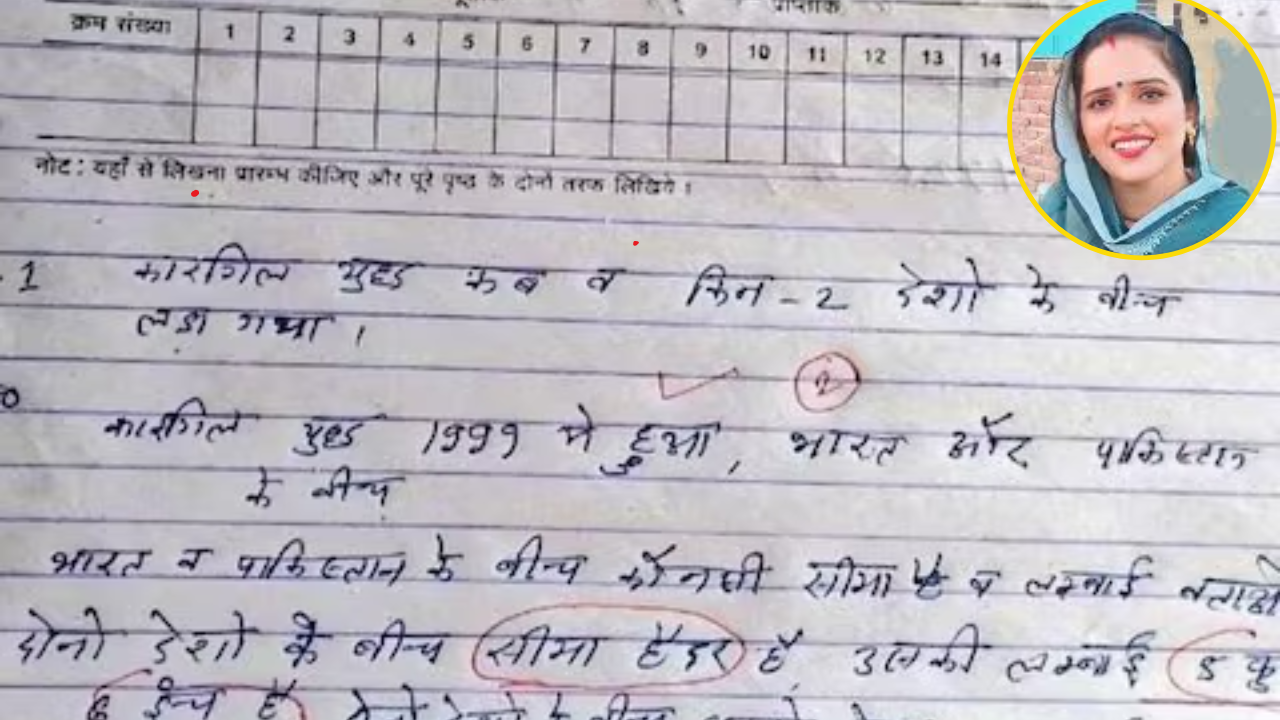 प्राप्तांक
क्रम संख्या 1 2 3 4 5 6 7 8 9 10 11 12 13 14
नोट : यहाँ से लिखना प्रारम्भ कीजिए और पूरे पृष्ठ के दोनो तरफ लिखिये ।
1 कारगिल युद्ध कब व किन-2 देशो के बीच
लडा गया ।
2
कारगिल युद्ध 1999 मे हुआ, भारत और पाकिस्तान
के बीच
भारत व पाकिस्तान के बीच कौनसी सीमा है व लम्बाई बताओ
दोनो देशो के बीच सीमा हैदर है, उसकी लम्बाई 5 फु
6 इंच है